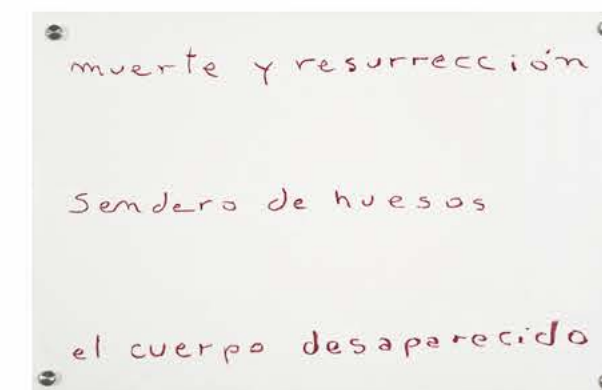 muerte y resurrección
Sendero de huesos
el cuerpo desaparecido